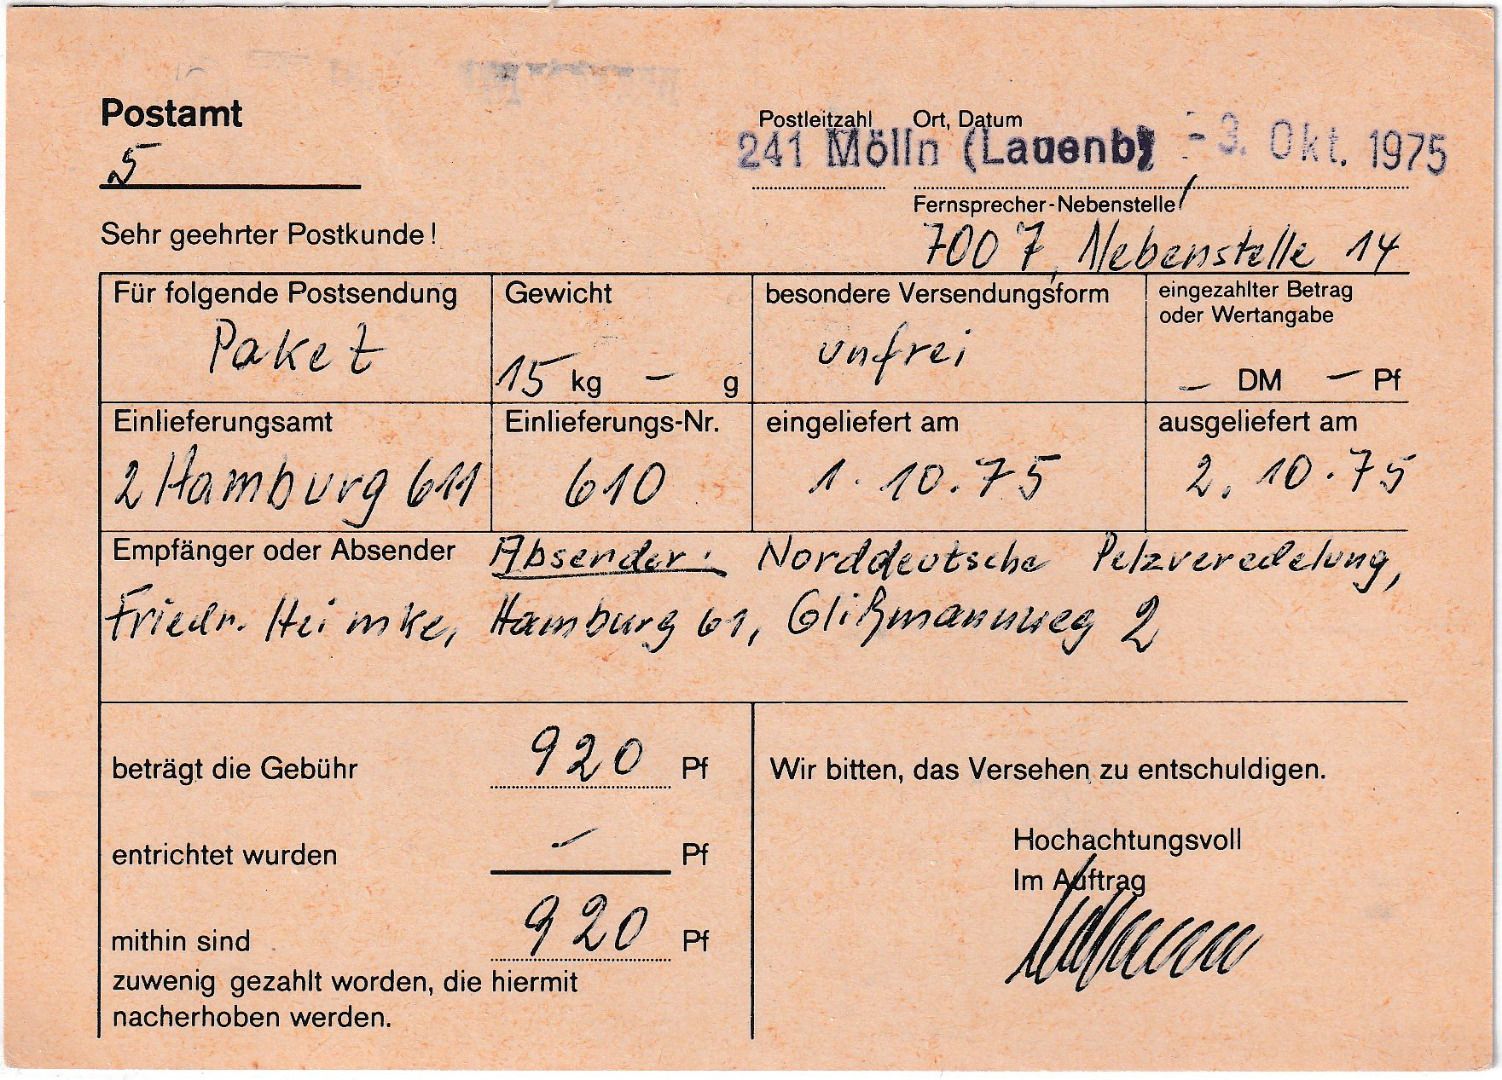 Postamt
5
Postleitzahl Ort, Datum
241 Mölln (Lauenb) -3. Okt. 1975
Fernsprecher-Nebenstelle
7007, Nebenstelle 14
Sehr geehrter Postkunde!
Für folgende Postsendung Gewicht besondere Versendungsform eingezahlter Betrag
oder Wertangabe
Paket 15 kg — g unfrei — DM — Pf
Einlieferungsamt Einlieferungs-Nr. eingeliefert am ausgeliefert am
2 Hamburg 611 610 1. 10. 75 2. 10. 75
Empfänger oder Absender Absender: Norddeutsche Pelzveredelung,
Friedr. Heimke, Hamburg 61, Glißmannweg 2
beträgt die Gebühr 920 Pf
entrichtet wurden — Pf
mithin sind 920 Pf
zuwenig gezahlt worden, die hiermit
nacherhoben werden.
Wir bitten, das Versehen zu entschuldigen.
Hochachtungsvoll
Im Auftrag